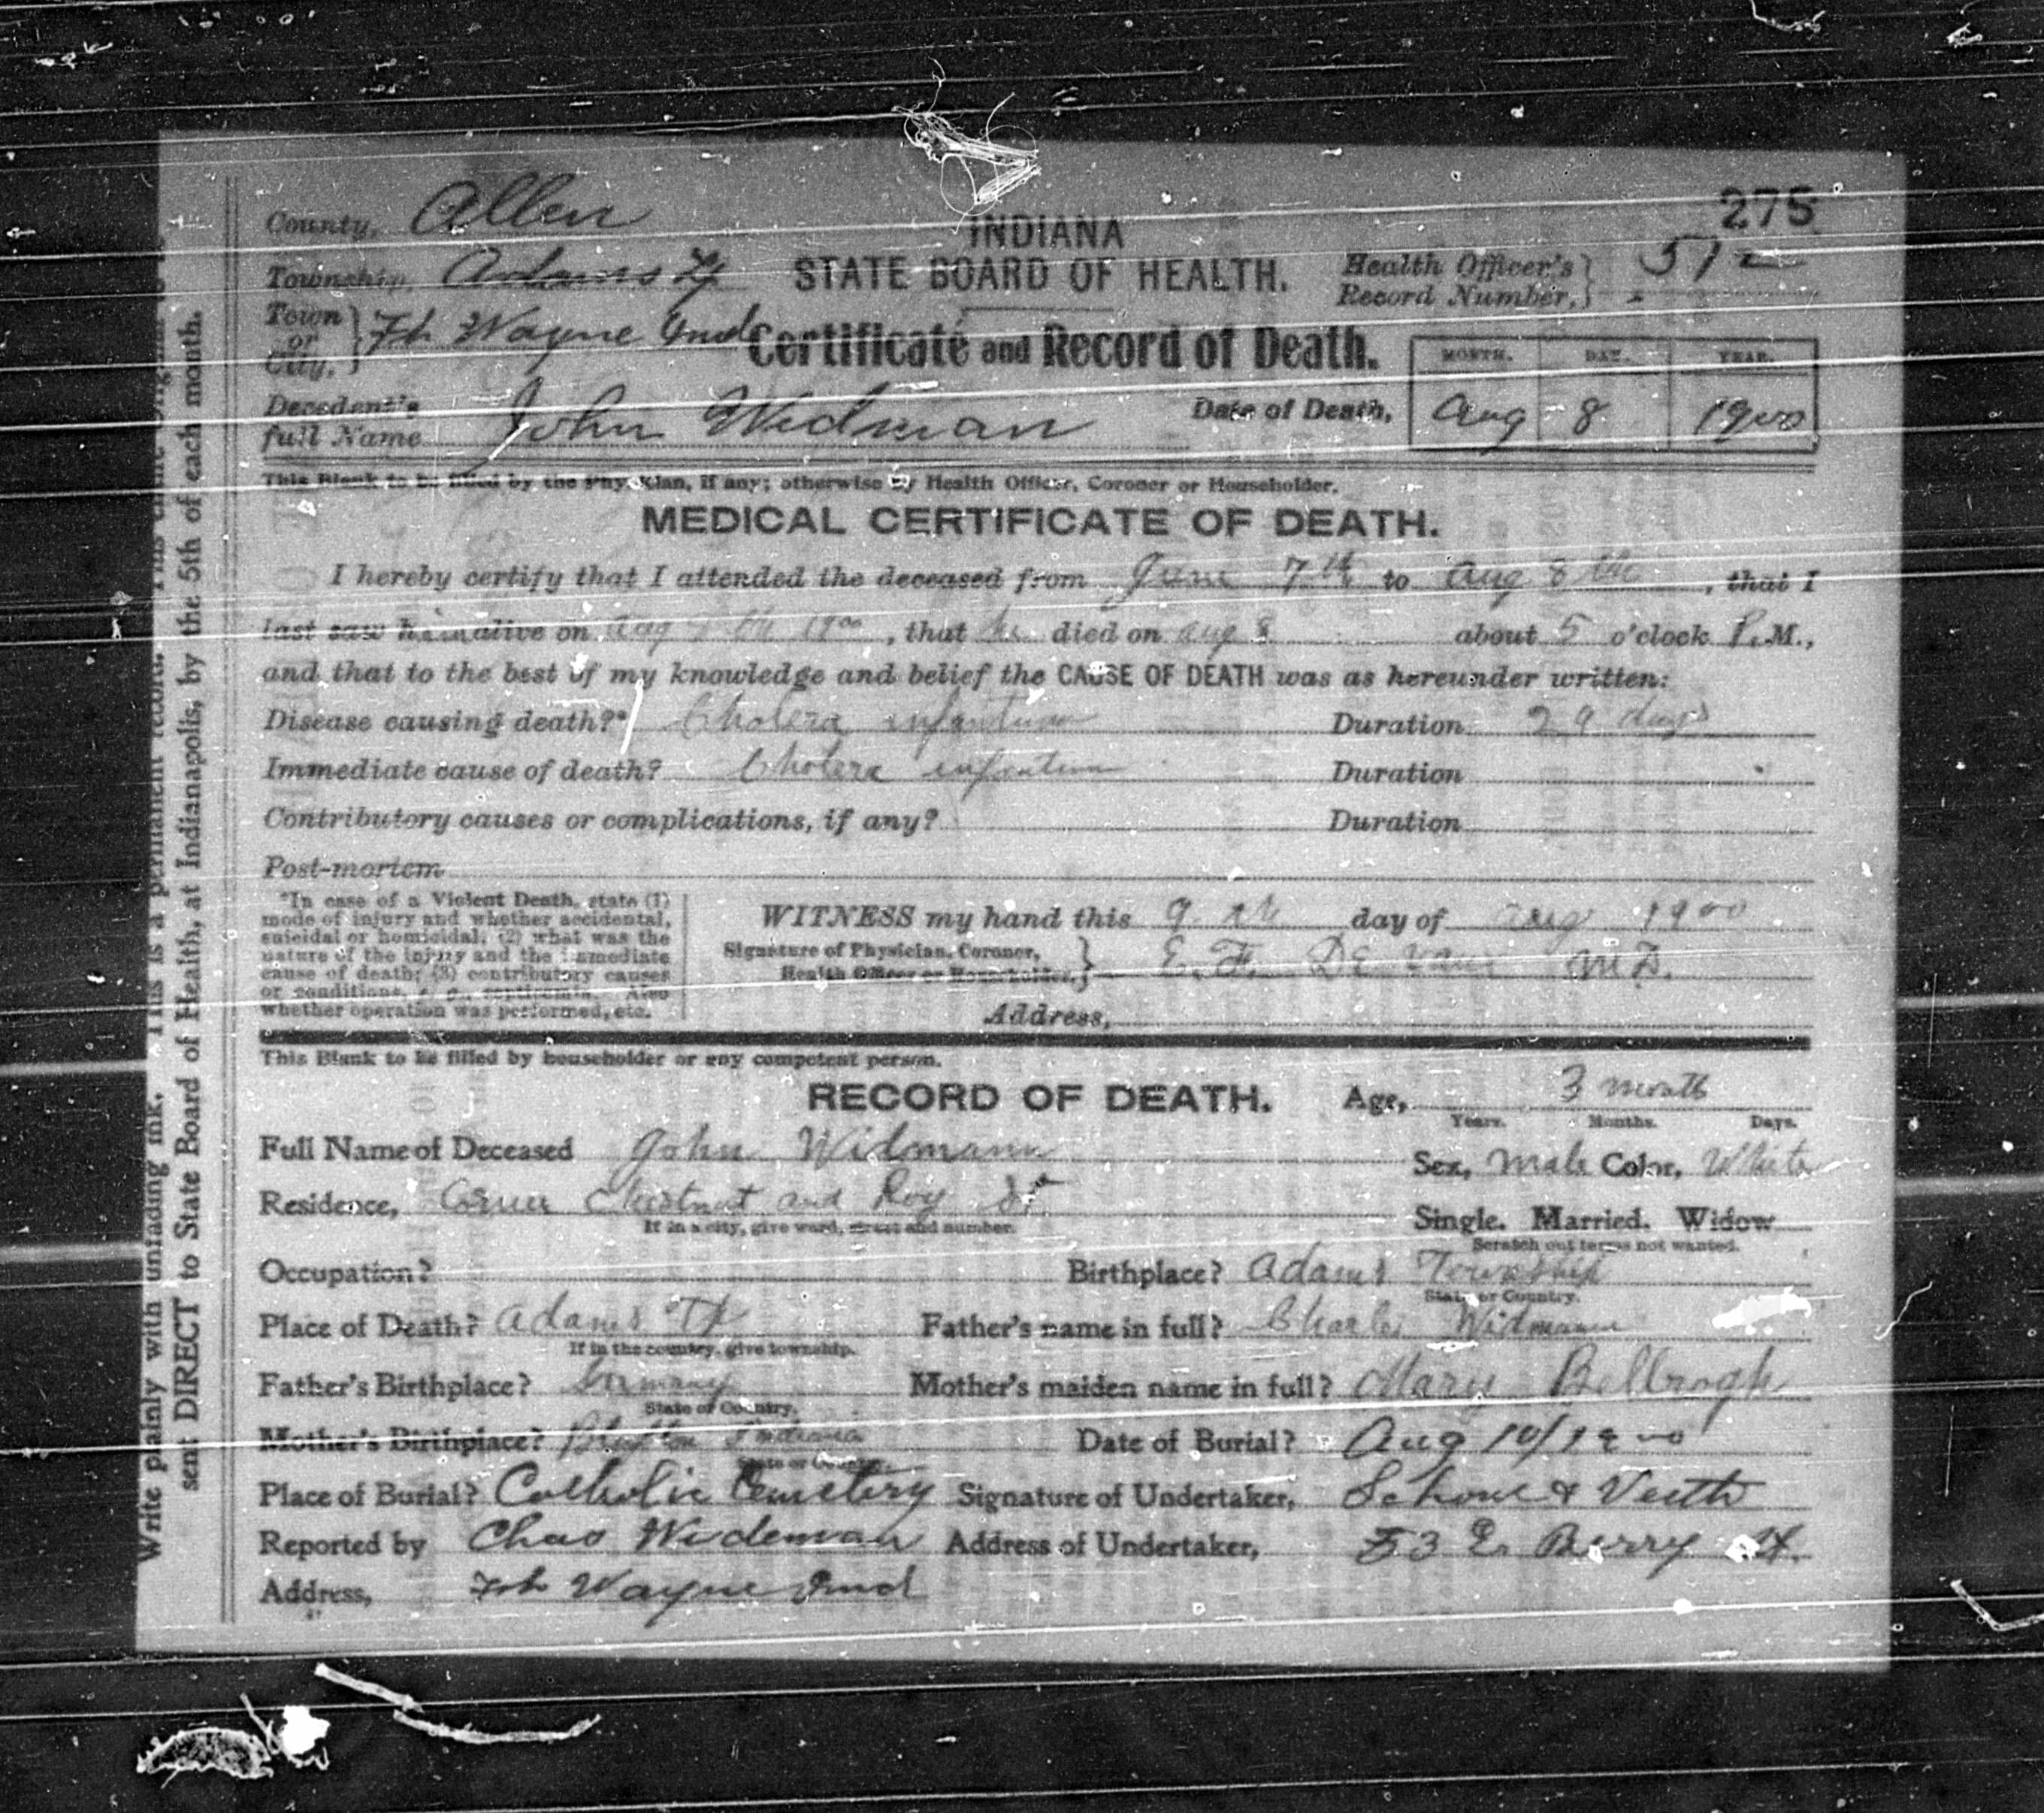 275
County, Allen
INDIANA
Township, Adams Tp
STATE BOARD OF HEALTH.
Health Officer's Record Number, 512
Town or City, Ft Wayne Ind
Certificate and Record of Death.
MONTH. DAY. YEAR.
Decedent's full Name John Widman
Date of Death, Aug 8 1900
This Blank to be filled by the Physician, if any; otherwise by Health Officer, Coroner or Householder.
MEDICAL CERTIFICATE OF DEATH.
I hereby certify that I attended the deceased from June 7th to Aug 8th, that I
last saw him alive on Aug th 1900, that he died on Aug 8 about 5 o'clock P.M.,
and that to the best of my knowledge and belief the CAUSE OF DEATH was as hereunder written:
Disease causing death?* Cholera infantum Duration 29 days
Immediate cause of death? Cholera infantum Duration
Contributory causes or complications, if any? Duration
Post-mortem
*In case of a Violent Death, state (1)
mode of injury and whether accidental,
suicidal or homicidal; (2) what was the
nature of the injury and the immediate
cause of death; (3) contributory causes
or conditions, e. g., septicemia. Also
whether operation was performed, etc.
WITNESS my hand this 9th day of Aug 1900
Signature of Physician, Coroner, Health Officer or Householder, E. F. De Vaux M.D.
Address,
This Blank to be filled by householder or any competent person.
RECORD OF DEATH. Age, 3 month
Years. Months. Days.
Full Name of Deceased John Widmann
Sex, Male Color, White
Residence, Corner Chestnut and Roy St
If in a city, give ward, street and number.
Single. Married. Widow
Scratch out terms not wanted.
Occupation? Birthplace? Adams Township
State or Country.
Place of Death? Adams Tp Father's name in full? Charles Widmann
If in the country, give township.
Father's Birthplace? Germany Mother's maiden name in full? Mary
State or Country.
Mother's Birthplace? Bluffton Indiana Date of Burial? Aug 10/1900
State or Country.
Place of Burial? Catholic Cemetery Signature of Undertaker, Schone & Veith
Reported by Chas Wideman Address of Undertaker, 53 E. Berry St.
Address, Ft Wayne Ind
Write plainly with unfading ink. This is a permanent record.
sent DIRECT to State Board of Health, at Indianapolis, by the 5th of each month.